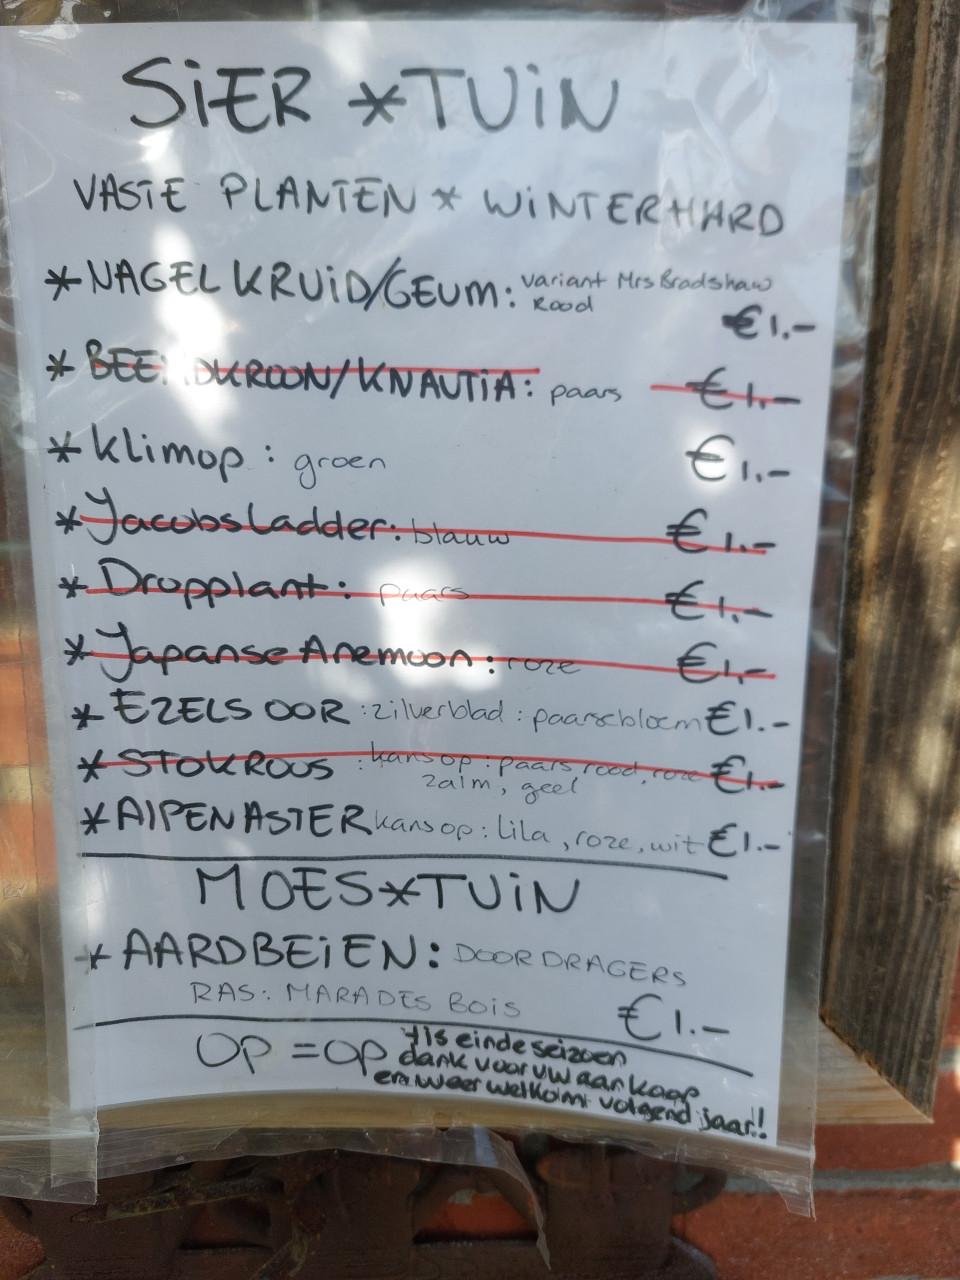 SiER *TUiN
VASTE PLANTEN * WiNTERHARD
* NAGELKRUiD/GEUM: variant Mrs Bradshaw
Rood
€1.-
* BEEMDKROON/KNAUTiA: paars €1.-
* Klimop: groen €1.-
* Jacobsladder: blauw €1.-
* Dropplant: paars €1.-
* Japanse Anemoon: roze €1.-
* EZELSOOR: zilverblad: paarse bloem €1.-
* STOKROOS: kans op: paars, rood, roze €1.-
zalm, geel
* AlPENASTER kans op: Lila, roze, wit €1.-
MOES*TUiN
* AARDBEiEN: DOORDRAGERS
RAS: MARA DES BOIS €1.-
OP = OP
't is einde seizoen
dank voor uw aankoop
en weer welkom volgend jaar!!